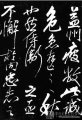 益州疲弊此誠
危急存亡之秋
也然侍衛之臣
不懈於內忠志